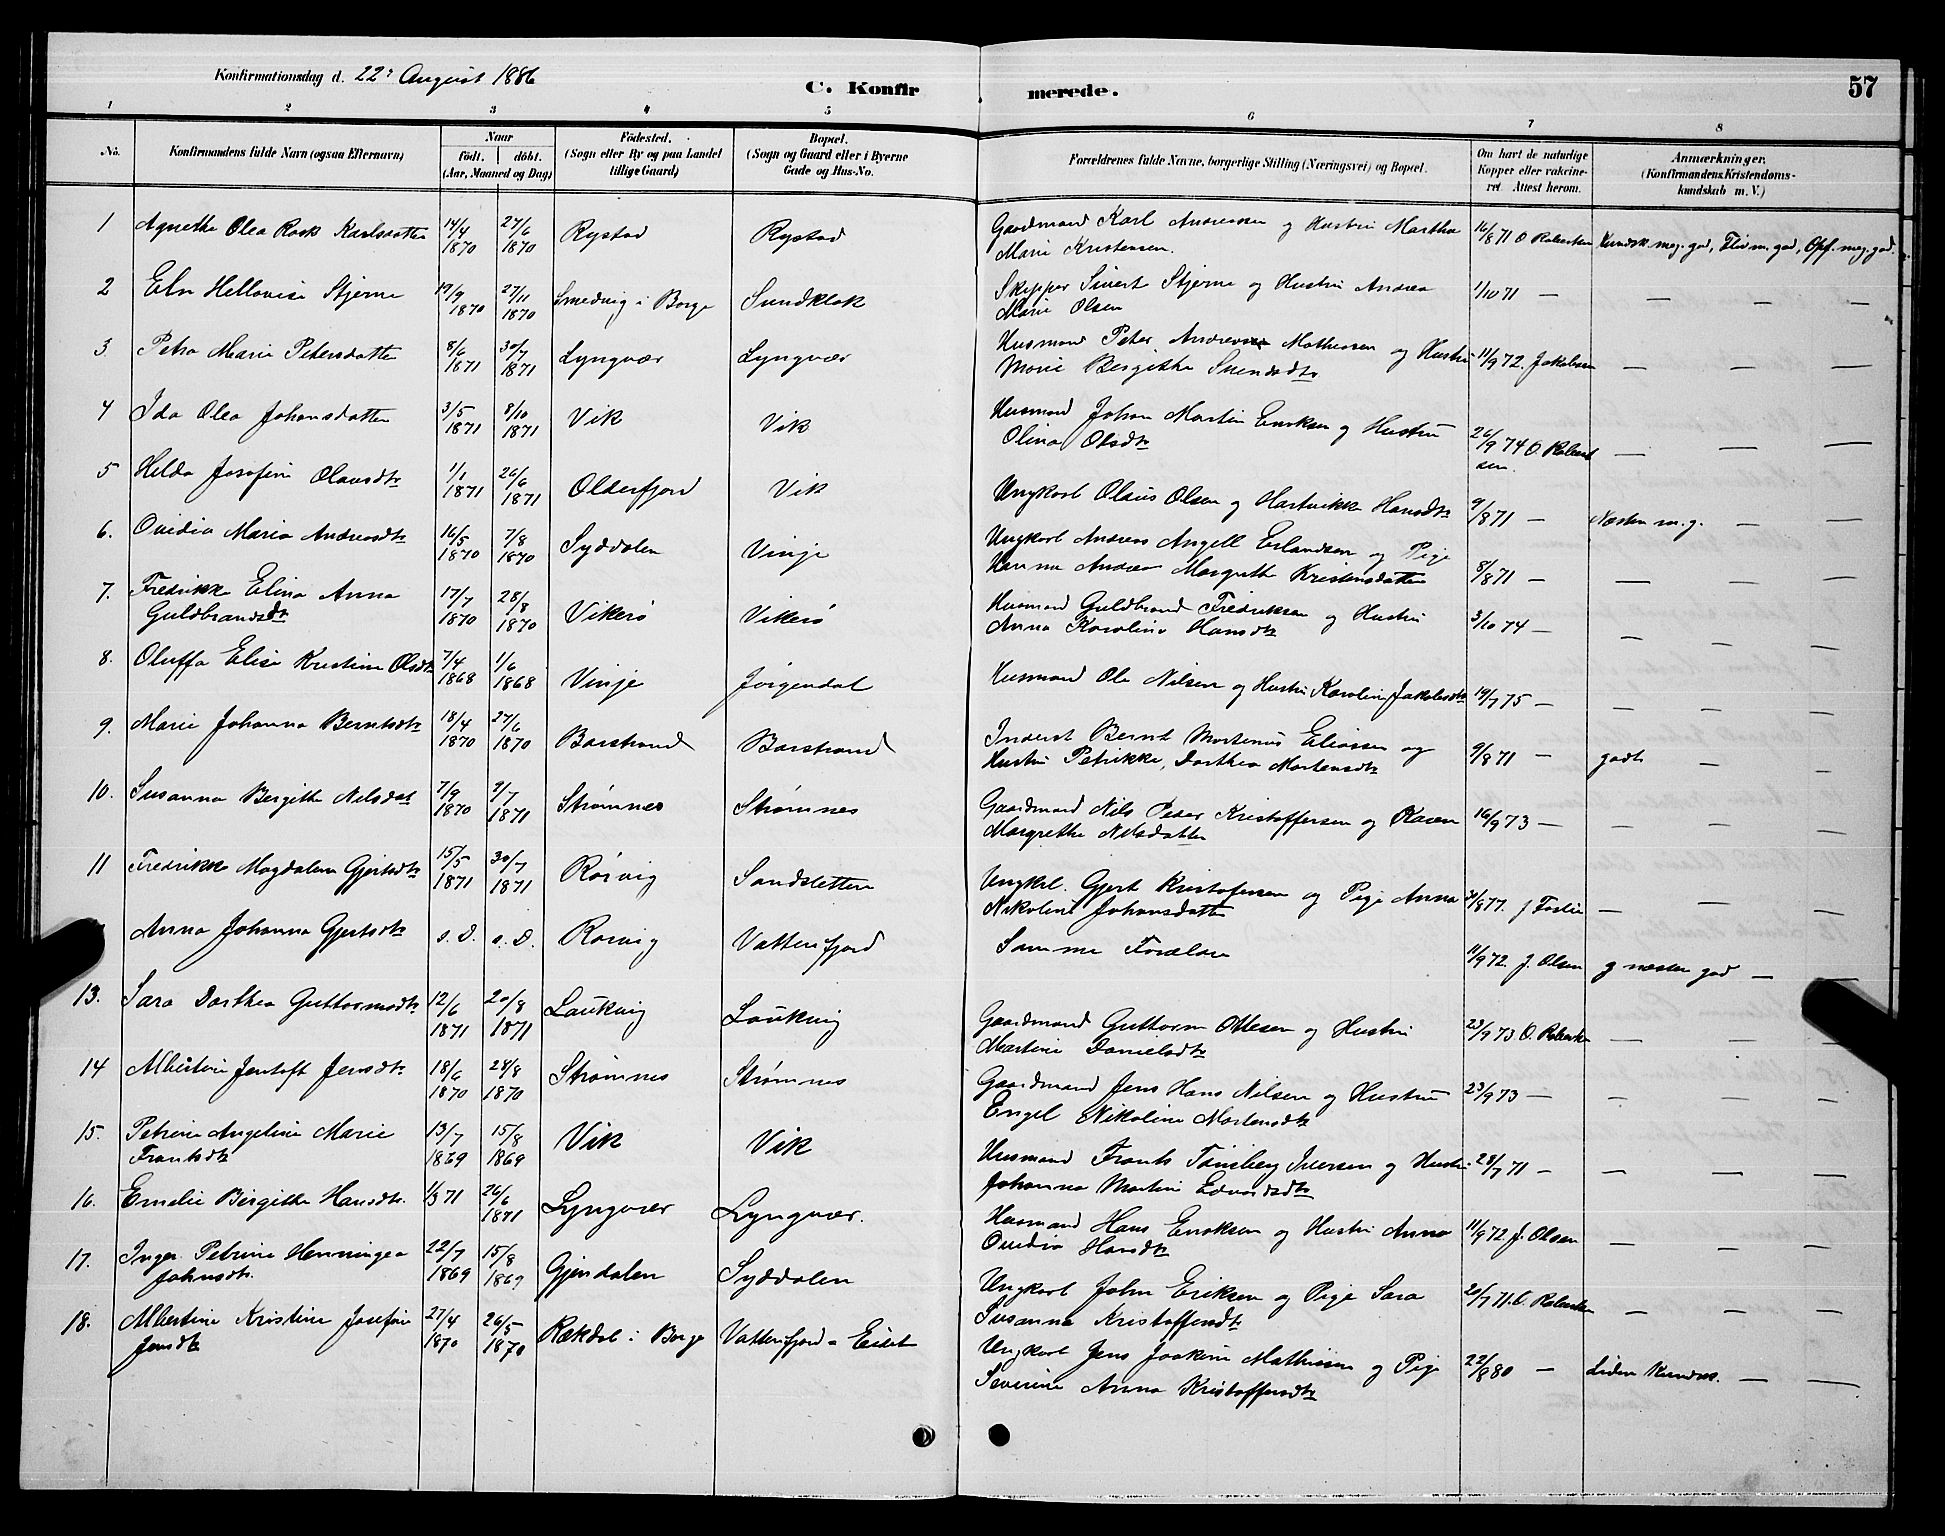 Konfirmationsdag d. 22: August 1886
C. Konfir merede. 57
1 2 3 4 5 6 7 8
No. Konfirmandens fulde Navn (ogsaa Efternavn) Naar født. døbt. (Aar, Maaned og Dag) Fødested. (Sogn eller By og paa Landet tillige Gaard) Bopæl. (Sogn og Gaard eller i Byerne Gade og Hus-No. Forældrenes fulde Navne, borgerlige Stilling (Næringsvei) og Bopæl. Om havt de naturlige Kopper eller vakcineret. Attest herom. Anmærkninger. (Konfirmandens Kristendomskundskab m. V.)
1 Agnethe Olea Rask Karlsdatter 14/4 1870 27/6 1870 Rystad Rystad Gaardmand Karl Andreassen og Hustru Martha 16/8 71 O Robertsen Kundsk. meg. god, Flid m. god, Opf. meg. god.
Marie Kristensen.
2 Eln Hellovise Stjerne 19/9 1870 27/11 1870 Smedvig i Borge Sundklak Skipper Sivert Stjerne og Hustru Andrea 1/10 71 — — — —
Marie Olsen
3 Petra Marie Petersdatter 8/6 1871 30/7 1871 Lyngvær Lyngvær Husmand Peter Andreas Mathiesen og Hustru 11/9 72. Jakobsen — — —
Marie Bergithe Svendsdtr
4 Ida Olea Johansdatter 3/5 1871 8/10 1871 Vik Vik Husmand Johan Martin Eriksen og Hustru 26/9 74 O. Robertsen — — —
Olina Olsdtr
5 Helda Josefine Olausdtr 1/1 1871 26/6 1871 Olderfjord Vik Ungkarl Olaus Olsen og Hartvikke Hansdtr 9/8 71 — Næsten m. g. — —
6. Ovidia Maria Andreasdtr 16/5 1870 7/8 1870 Syddalen Vinje Ungkarl Andreas Angell Erlandsen og Pige
Hanna Andrea Margrethe Kristensdatter 8/8 71 — — — —
7. Fredrikke Elina Anna 17/7 1870 28/8 1870 Vikerø Vikerø Husmand Guldbrand Fredriksen og Hustru 3/10 74 — — — —
Guldbrandsdtr Anna Karolina Hansdtr
8. Oluffa Elise Kristine Olsdtr 7/4 1868 1/6 1868 Vinje Jørgendal Husmand Ole Nilsen og Hustru Karoline Jakobsdtr 19/7 75 — — — —
9. Marie Johanna Berntsdtr 18/4 1870 27/6 1870 Barstrand Barstrand Inderst Bernt Mortenus Eliassen og 9/8 71 — godt — —
Hustru Petrikke, Dorthea Mortensdtr
10. Susanna Bergithe Nilsdat 7/9 1870 9/7 1871 Strømnes Strømnes Gaardmand Nils Peder Kristoffersen og Karen 16/9 73 — — — —
Margrethe Nilsdatter
11 Fredrikke Magdalena Gjertsdtr 15/5 1871 30/7 1871 Rørvig Sandsletten Ungkrl. Gjert Kristofersen og Pige Anna /8 77. J Foslie — — —
Nikoline Johansdatter
Anna Johanna Gjertsdtr s. D. s. D. Rørvig Vatterfjord Samme Forældre 11/9 72. J. Olsen g næsten god — —
13. Sara Dorthea Guttormsdtr 12/6 1871 20/8 1871 Laukvig Laukvig Gaardmand Guttorm Ottesen og Hustru 23/9 73 O. Robertsen — — —
Martine Danielsdtr
14 Albertine Jentoft Jensdtr 18/6 1870 24/8 1870 Strømnes Strømnes Gaardmand Jens Hans Nilsen og Hustru 23/9 73 — — — —
Engel Nikoline Mortensdtr
15. Petrine Angeline Marie 13/7 1869 15/8 1869 Vik Vik Husmand Frants Tønsberg Iversen og Hustru 28/7 71 — — — —
Frantsdtr Johanna Martine Edvardsdtr
16. Emelie Bergitha Hansdtr. 1/3 71 26/6 1871 Lyngvær Lyngvær. Husmand Hans Eriksen og Hustru Anna 11/9 72 J. Olsen — — —
Ovidia Hansdtr
17. Inger Petrine Henningea 22/7 1869 15/8 1869 Gjendalen Syddalen Ungkarl John Eriksen og Pige Sara 20/7 71. O. Robertsen — — —
Johnsdtr. Susanna Kristoffersdtr
18. Albertine Kristine Josefine 27/4 1870 26/5 1870 Rækdal i Borge Vatterfjord-Eidet Ungkarl Jens Joakim Mathiesen og Pige 22/8 80 — Liden Kundsk. — —
Jensdtr Severine Anna Kristoffersdtr